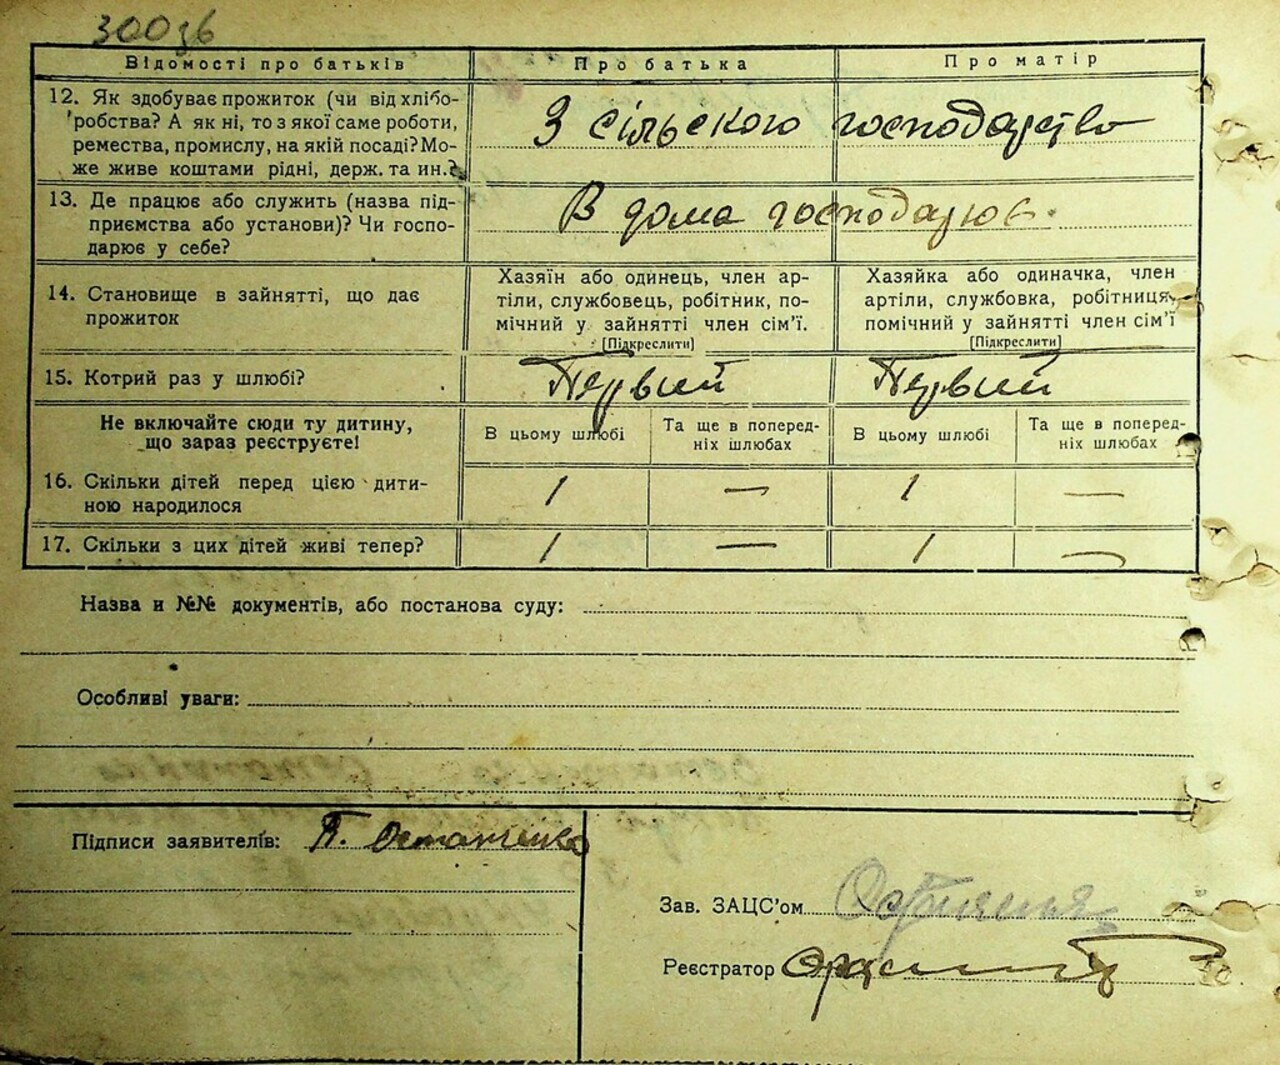 30036
Відомості про батьків
Про батька
Про матір
12. Як здобуває прожиток (чи від хлібо-
робства? А як ні, то з якої саме роботи,
ремества, промислу, на якій посаді? Мо-
же живе коштами рідні, держ. та ин.?
З сільского господарство
13. Де працює або служить (назва під-
приємства або установи)? Чи госпо-
дарює у себе?
В дома господарює.
14. Становище в зайнятті, що дає
прожиток
Хазяїн або одинець, член ар-
тіли, службовець, робітник, по-
мічний у зайнятті член сім’ї.
[Підкреслити]
Хазяйка або одиначка, член
артіли, службовка, робітниця,
помічний у зайнятті член сім’ї
[Підкреслити]
15. Котрий раз у шлюбі?
Первий
Первий
Не включайте сюди ту дитину,
що зараз реєструєте!
В цьому шлюбі
Та ще в поперед-
ніх шлюбах
В цьому шлюбі
Та ще в поперед-
ніх шлюбах
16. Скільки дітей перед цією дити-
ною народилося
1 — 1 —
17. Скільки з цих дітей живі тепер?
1 — 1 —
Назва и №№ документів, або постанова суду:
Особливі уваги:
Підписи заявителів: П. Остапенко
Зав. ЗАЦС’ом
Реєстратор